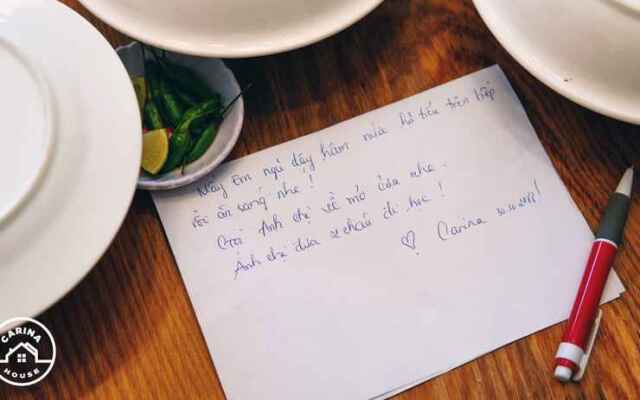 Mấy em ngủ dậy hâm nưa hủ tiếu trên bếp
rồi ăn sáng nhé!
Gọi Anh chị về mở cửa nha.
Anh chị đưa 2 cháu đi học!
♡ Carina
CARINA
HOUSE